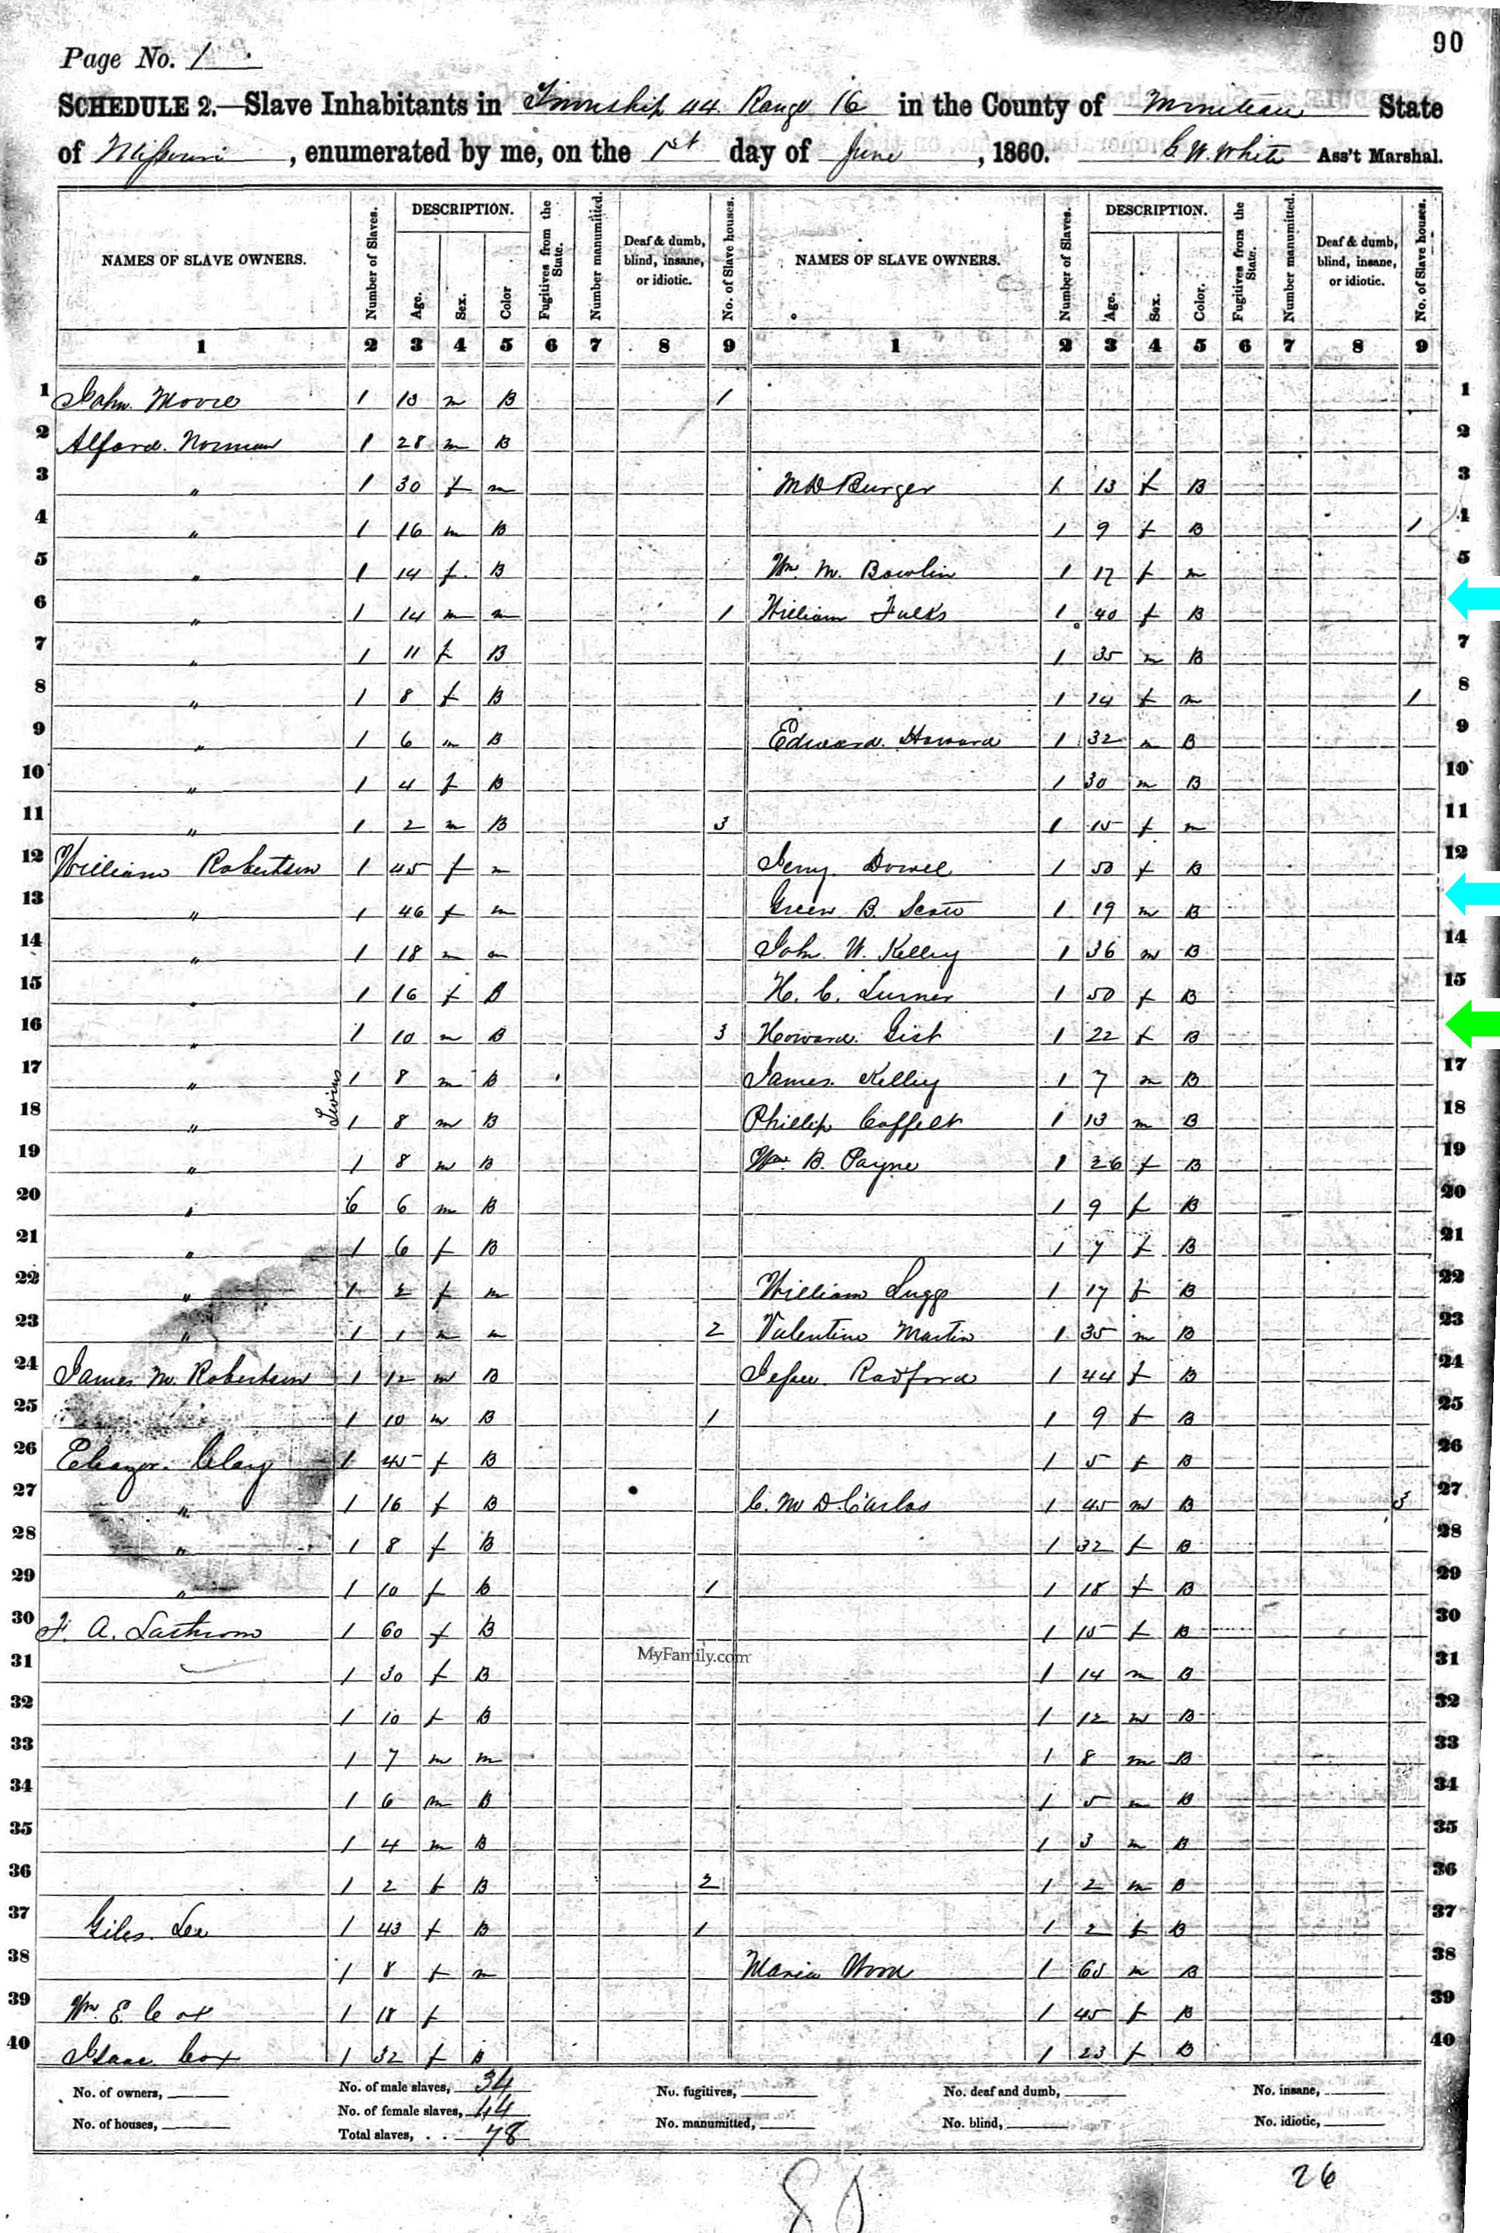 90
Page No. 1
SCHEDULE 2.—Slave Inhabitants in Township 44 Range 16 in the County of Moniteau State
of Missouri, enumerated by me, on the 1st day of June, 1860. C W. White Ass't Marshal.
NAMES OF SLAVE OWNERS. Number of Slaves. DESCRIPTION. Age. Sex. Color Fugitives from the State. Number manumitted. Deaf & dumb, blind, insane, or idiotic. No. of Slave houses. NAMES OF SLAVE OWNERS. Number of Slaves. DESCRIPTION. Age. Sex. Color. Fugitives from the State. Number manumitted. Deaf & dumb, blind, insane, or idiotic. No. of Slave houses.
1 2 3 4 5 6 7 8 9 1 2 3 4 5 6 7 8 9
1 John Moore 1 13 m B 1 1
2 Alford Norman 1 28 m B 2
3 " 1 30 f m M D Burger 1 13 f B 3
4 " 1 16 m B 1 9 f B 1 4
5 " 1 14 f B Wm. M. Bowlin 1 17 f m 5
6 " 1 14 m m 1 William Fulks 1 40 f B
7 " 1 11 f B 1 35 m B 7
8 " 1 8 f B 1 14 f m 1 8
9 " 1 6 m B Edward Howard 1 32 m B 9
10 " 1 4 f B 1 30 m B 10
11 " 1 2 m B 3 1 15 f m 11
12 William Robertson 1 45 f m Jerry Dowel 1 50 f B 12
13 " 1 46 f m Green B. Scott 1 19 m B
14 " 1 18 m m John W. Kelley 1 36 m B 14
15 " 1 16 f B H. C. Turner 1 50 f B 15
16 " 1 10 m B 3 Howard Gist 1 22 f B
17 " 1 8 m B James Kelley 1 7 m B 17
18 " Twins 1 8 m B Phillip Coffelt 1 13 m B 18
19 " 1 8 m B Wm. B. Payne 1 26 f B 19
20 " 6 6 m B 1 9 f B 20
21 " 1 6 f B 1 7 f B 21
22 " 1 2 f m William Sugg 1 17 f B 22
23 " 1 1 m m 2 Valentine Martin 1 35 m B 23
24 James M Robertson 1 12 m B Jesse Radford 1 44 f B 24
25 1 10 m B 1 1 9 f B 25
26 Eleazor Clay 1 45 f B 1 5 f B 26
27 " 1 16 f B C. M D. Carlos 1 45 m B 3 27
28 " 1 8 f B 1 32 f B 28
29 " 1 10 f B 1 1 18 f B 29
30 F. A. 1 60 f B 1 15 f B 30
31 1 30 f B MyFamily.com 1 14 m B 31
32 1 10 f B 1 12 m B 32
33 1 7 m m 1 8 m B 33
34 1 6 m B 1 5 m B 34
35 1 4 m B 1 3 m B 35
36 1 2 f B 2 1 2 m B 36
37 Giles Lee 1 43 f B 1 1 2 f B 37
38 1 8 f m Maria Wood 1 65 m B 38
39 Wm E. Cox 1 18 f 1 45 f B 39
40 Isaac Cox 1 32 f B 1 23 f B 40
No. of owners, No. of male slaves, 34 No. fugitives, No. deaf and dumb, No. insane,
No. of female slaves, 44
No. of houses, Total slaves, 78 No. manumitted, No. blind, No. idiotic,
26